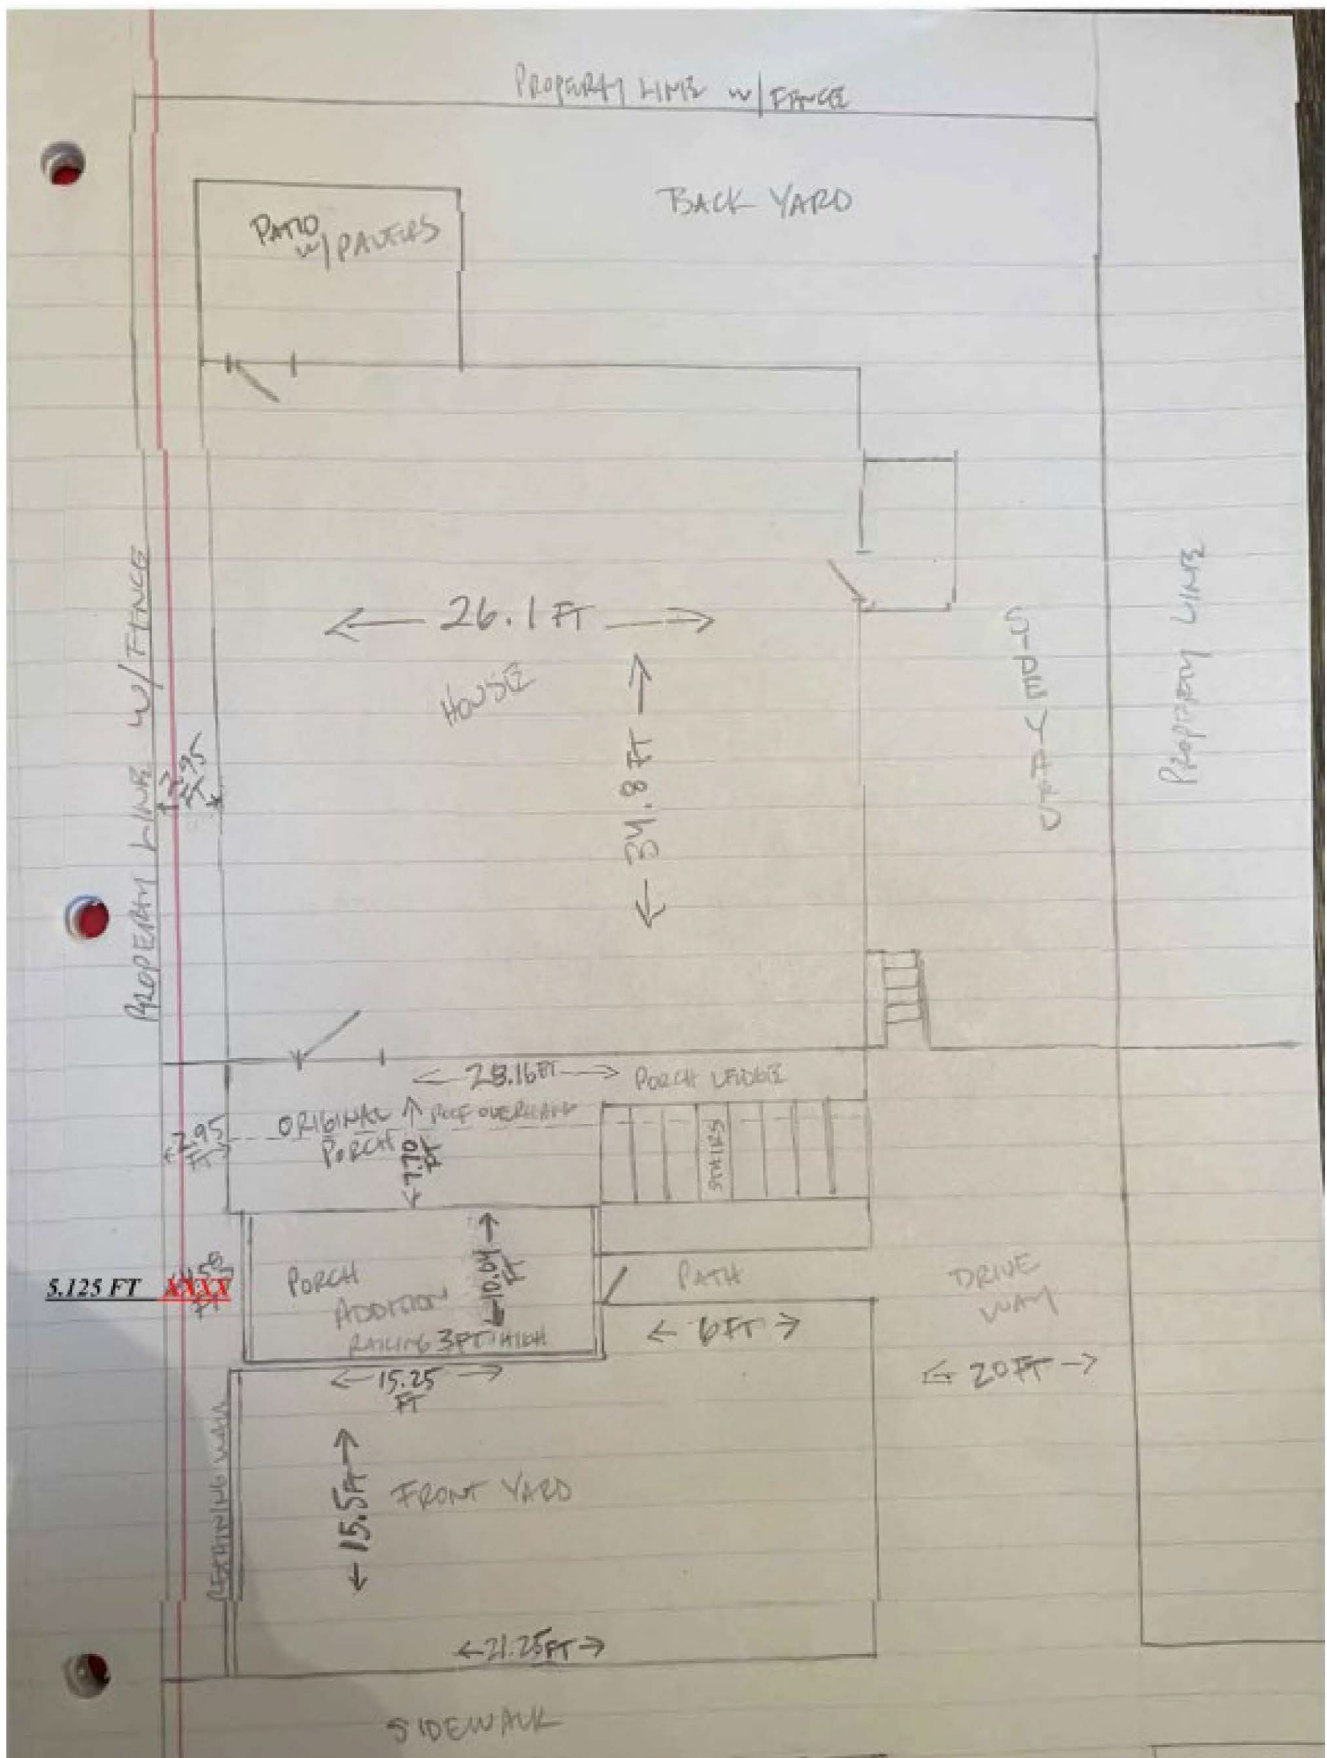 PROPERTY LINE W/ FENCE
BACK YARD
PATIO
W/ PAVERS
PROPERTY LINE W/ FENCE
26.1 FT
HOUSE
34.8 FT
SIDE YARD
PROPERTY LINE
2.95
28.16 FT
PORCH LEDGE
ORIGINAL
PORCH
ROOF OVERHANG
7.70
FT
2.95
FT
STAIRS
5.125 FT XXXX
FT
PORCH
ADDITION
RAILING 3 FT HIGH
10.04
FT
PATH
6 FT
DRIVE
WAY
20 FT
15.25
FT
RETAINING WALL
15.5 FT
FRONT YARD
21.25 FT
SIDEWALK